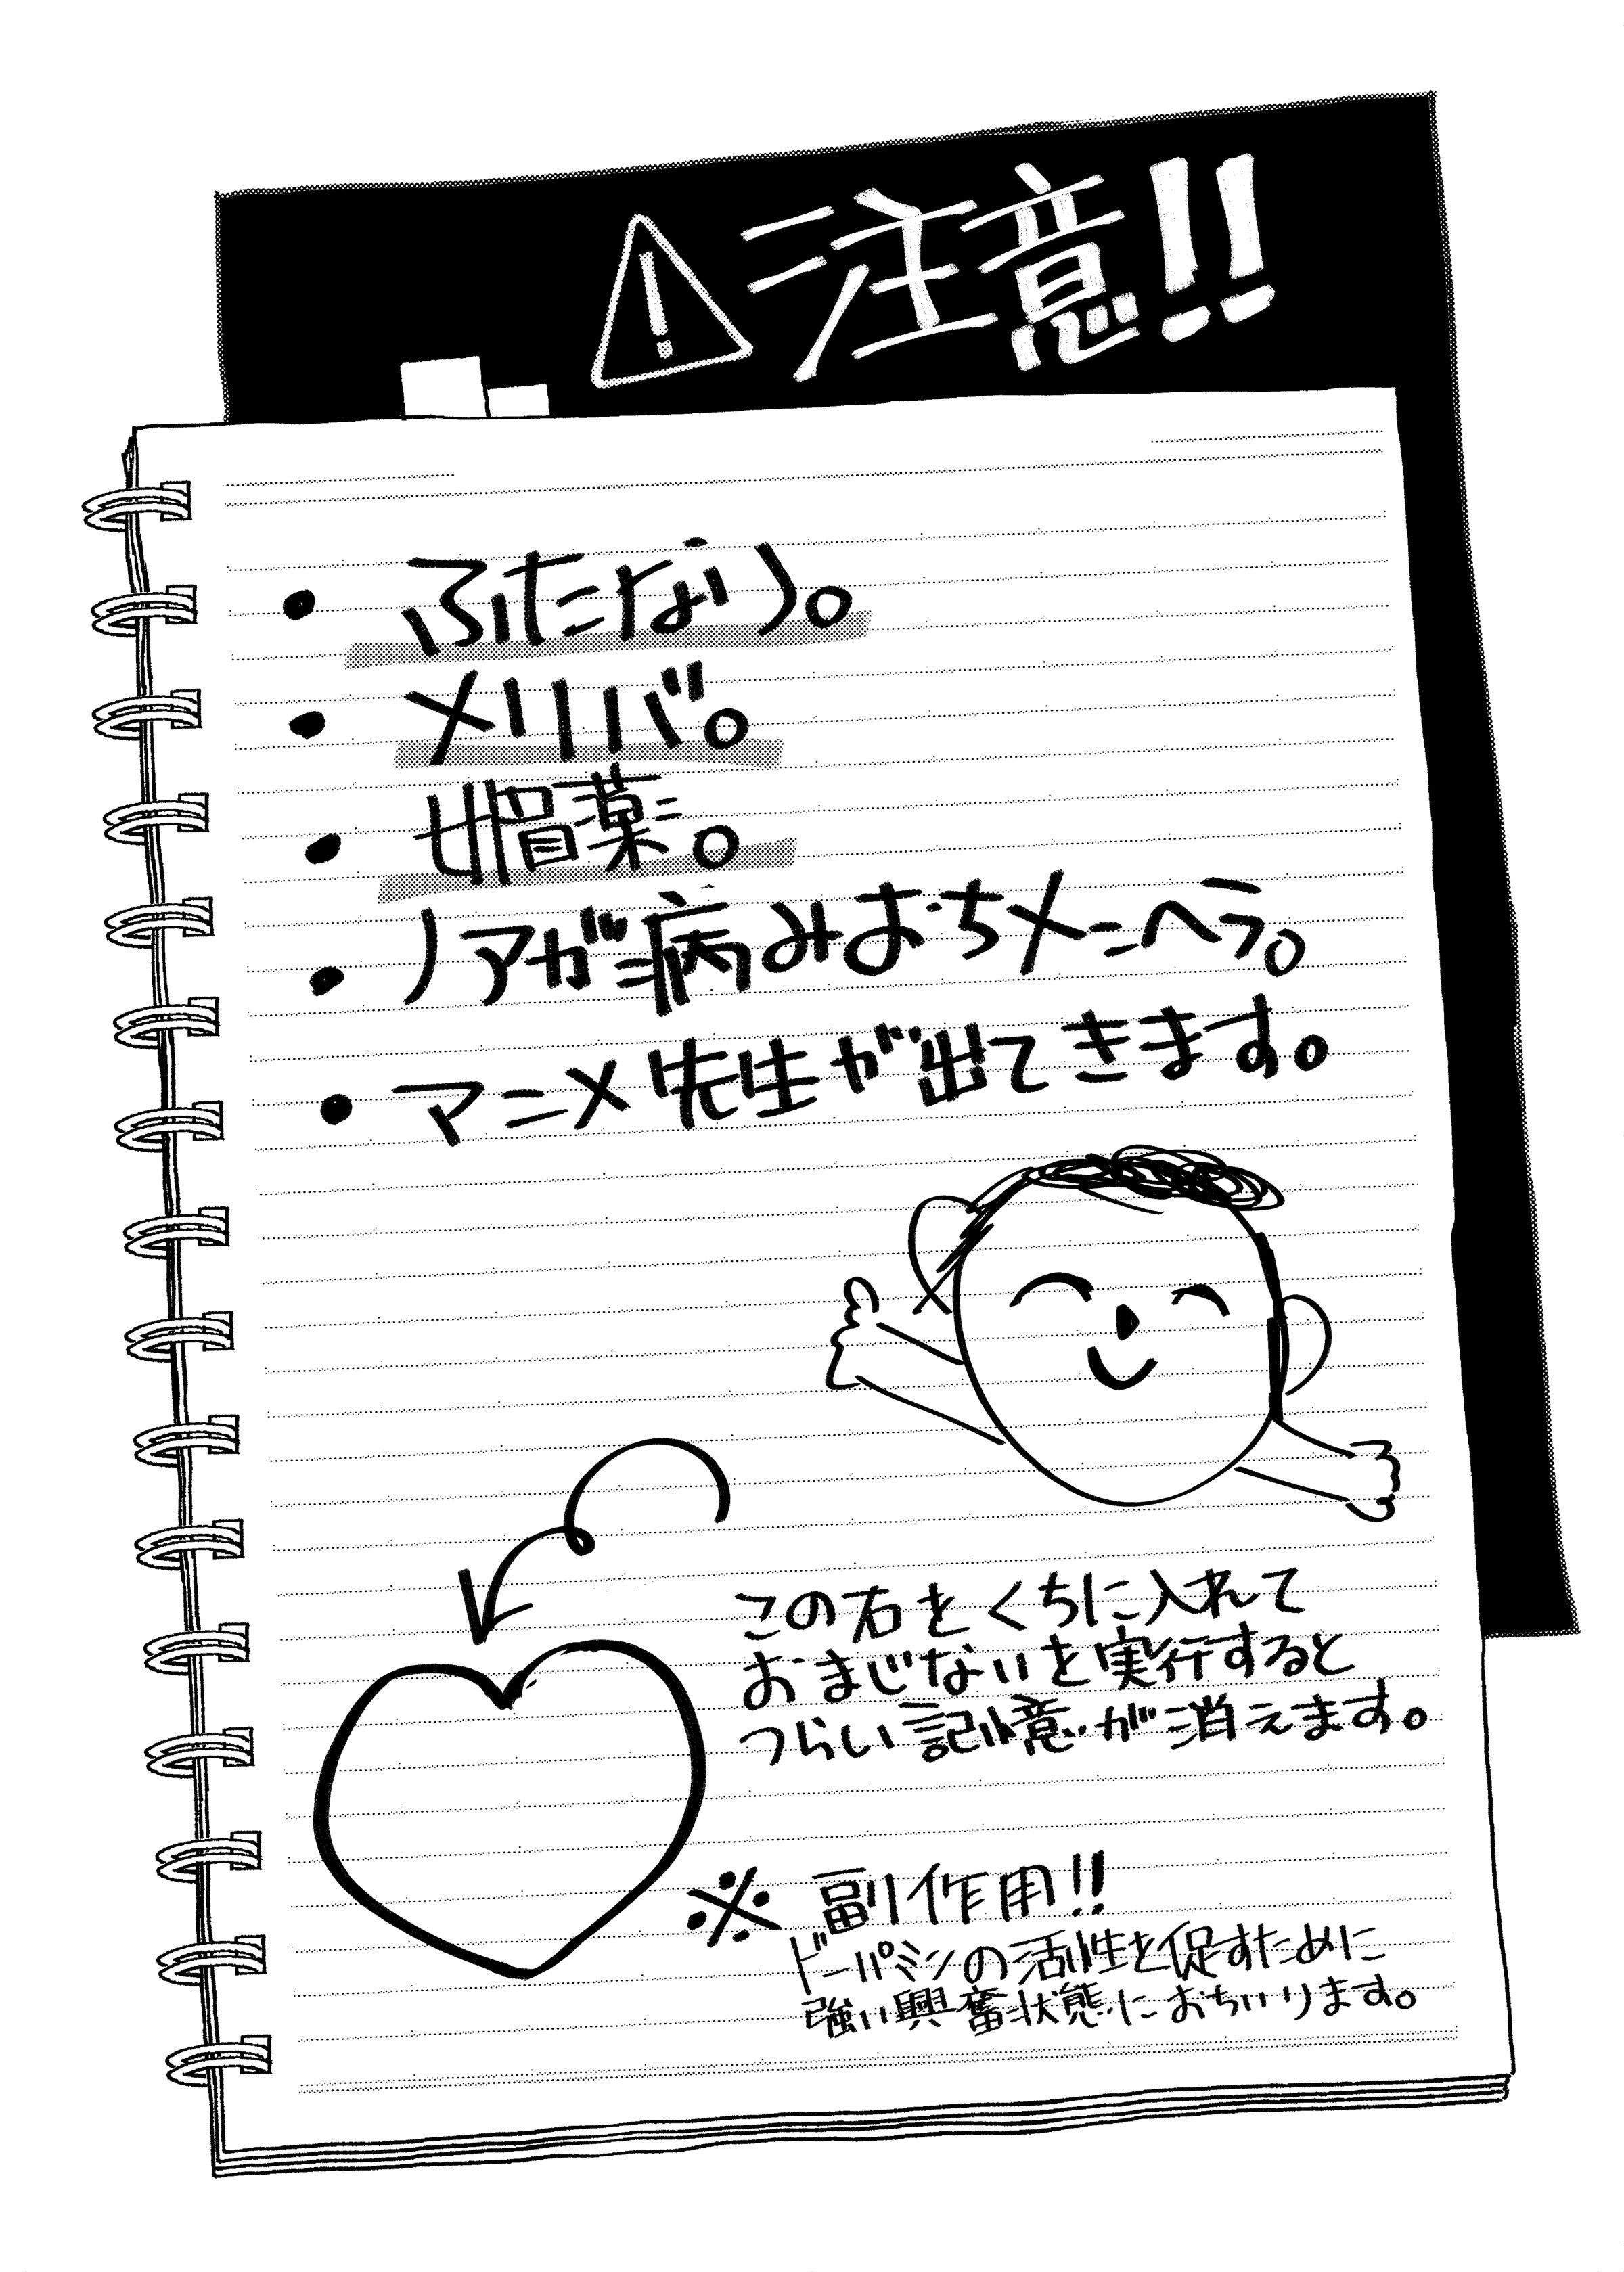 ⚠注意!!
・ふたなり。
・メリバ。
・媚薬。
・ノアが病みおちメニヘラ。
・マニメ先生が出てきます。
この石をくちに入れて
おまじないを実行すると
つらい記憶が消えます。
※副作用!!
ドーパミンの活性を促すために
強い興奮状態におちいります。